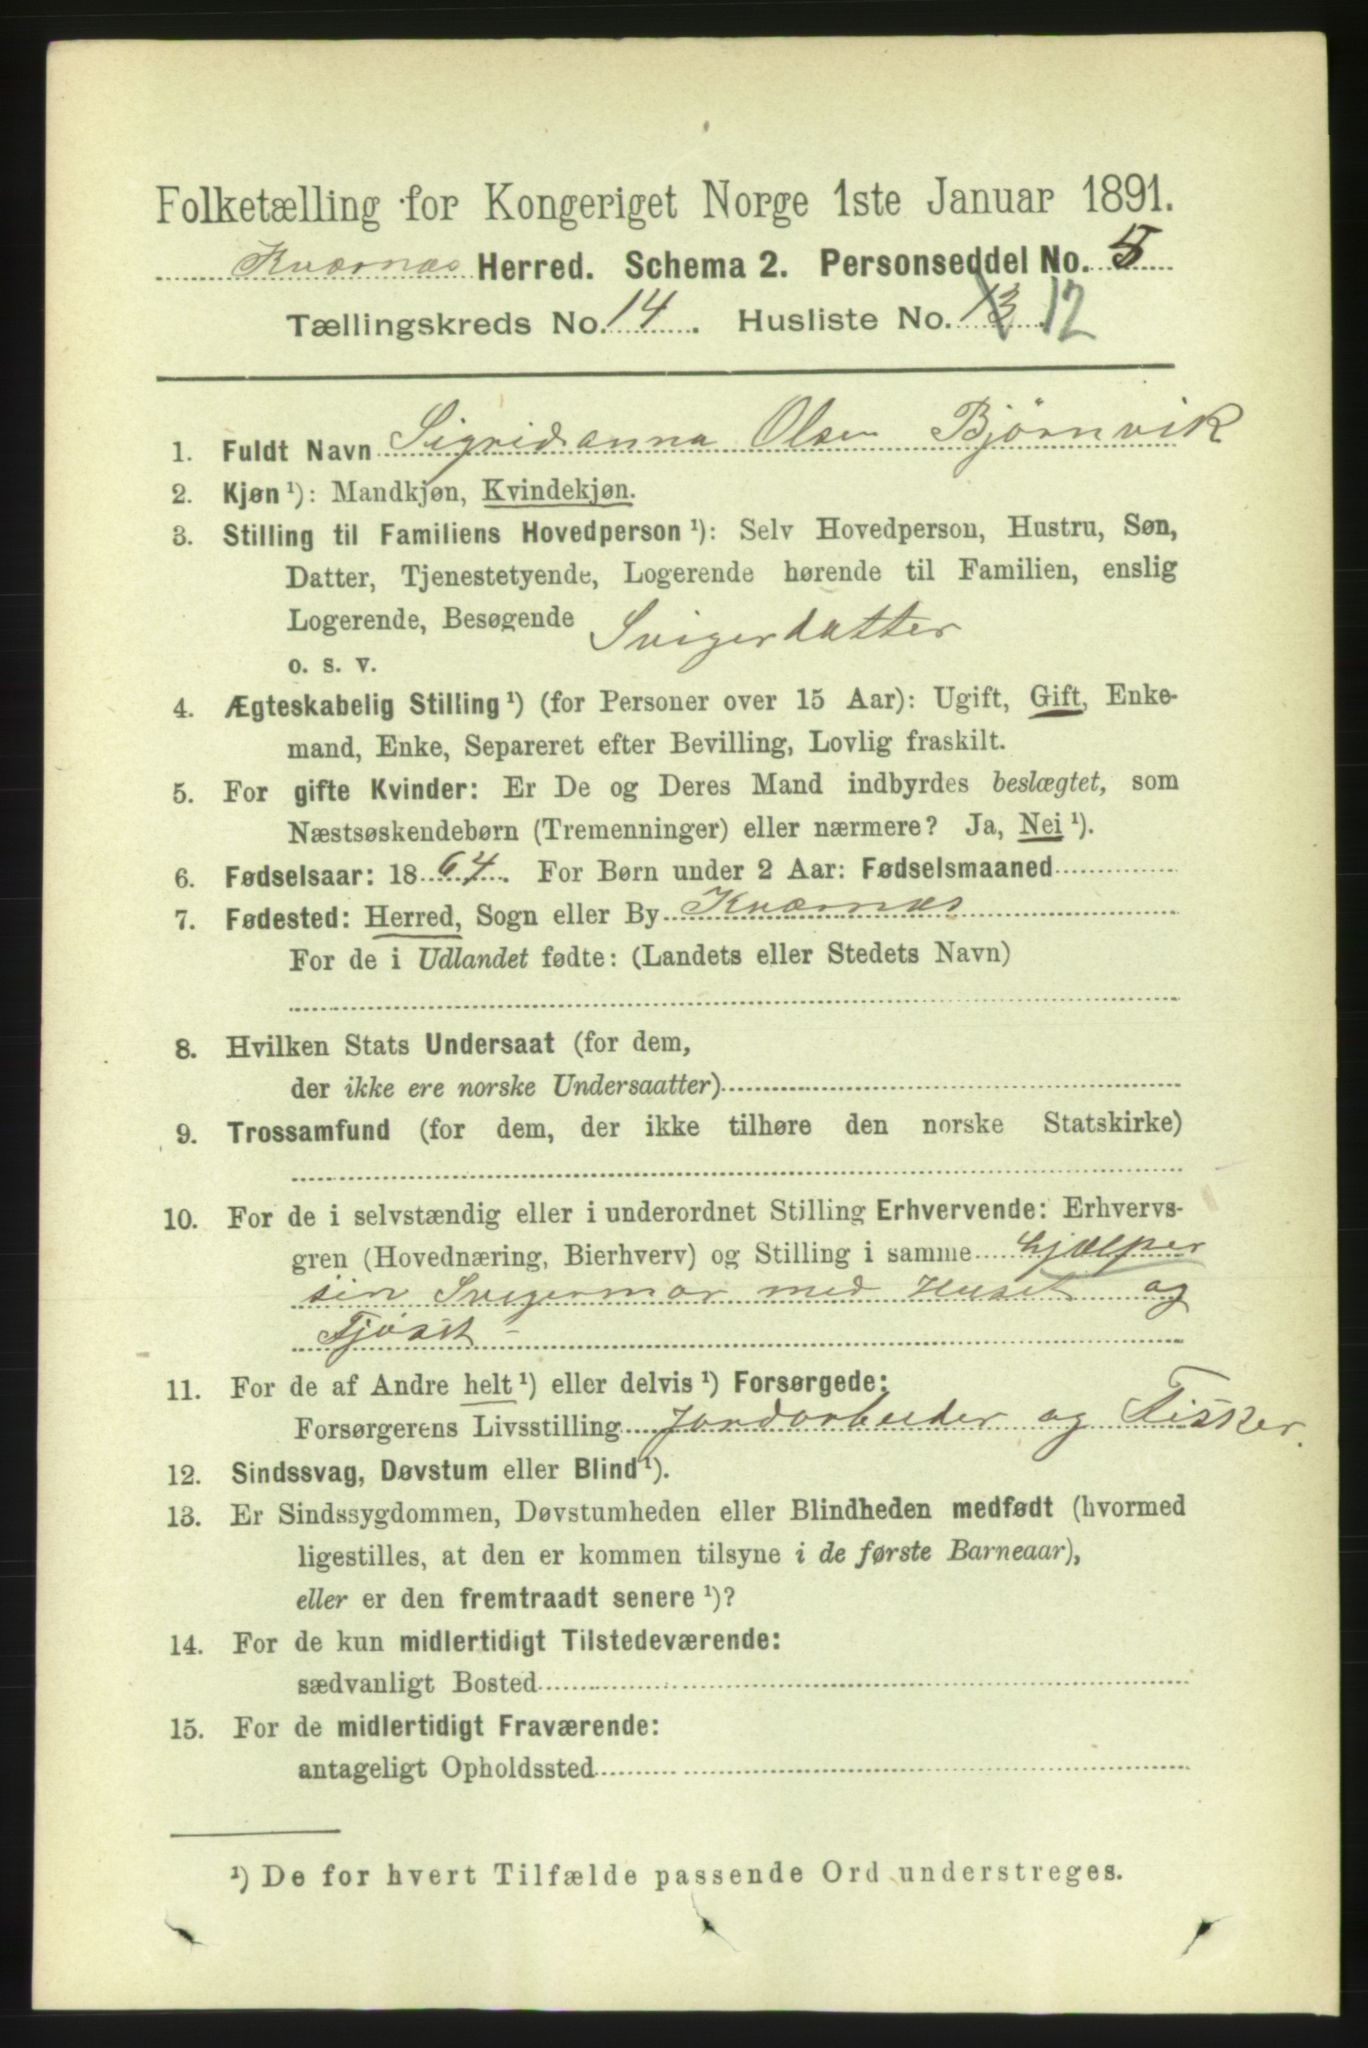 Folketælling for Kongeriget Norge 1ste Januar 1891.
Kværnæs Herred. Schema 2. Personseddel No. 5
Tællingskreds No. 14. Husliste No. 13 12
1. Fuldt Navn Sigridanna Olsen Bjørnvik
2. Kjøn ¹): Mandkjøn, Kvindekjøn.
3. Stilling til Familiens Hovedperson ¹): Selv Hovedperson, Hustru, Søn,
Datter, Tjenestetyende, Logerende hørende til Familien, enslig
Logerende, Besøgende Svigerdatter
o. s. v.
4. Ægteskabelig Stilling ¹) (for Personer over 15 Aar): Ugift, Gift, Enke-
mand, Enke, Separeret efter Bevilling, Lovlig fraskilt.
5. For gifte Kvinder: Er De og Deres Mand indbyrdes beslægtet, som
Næstsøskendebørn (Tremenninger) eller nærmere? Ja, Nei ¹).
6. Fødselsaar: 1864. For Børn under 2 Aar: Fødselsmaaned
7. Fødested: Herred, Sogn eller By Kværnæs
For de i Udlandet fødte: (Landets eller Stedets Navn)
8. Hvilken Stats Undersaat (for dem,
der ikke ere norske Undersaatter)
9. Trossamfund (for dem, der ikke tilhøre den norske Statskirke)
10. For de i selvstændig eller i underordnet Stilling Erhvervende: Erhvervs-
gren (Hovednæring, Bierhverv) og Stilling i samme hjælper
sin Svigermor med Huset og
Fjøsit -
11. For de af Andre helt ¹) eller delvis ¹) Forsørgede:
Forsørgerens Livsstilling Jordarbeider og Fisker.
12. Sindssvag, Døvstum eller Blind ¹).
13. Er Sindssygdommen, Døvstumheden eller Blindheden medfødt (hvormed
ligestilles, at den er kommen tilsyne i de første Barneaar),
eller er den fremtraadt senere ¹)?
14. For de kun midlertidigt Tilstedeværende:
sædvanligt Bosted
15. For de midlertidigt Fraværende:
antageligt Opholdssted
¹) De for hvert Tilfælde passende Ord understreges.